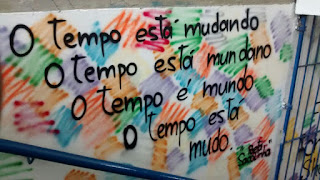 O tempo está mudando
O tempo está mundano
O tempo é mundo
O tempo está
mudo.